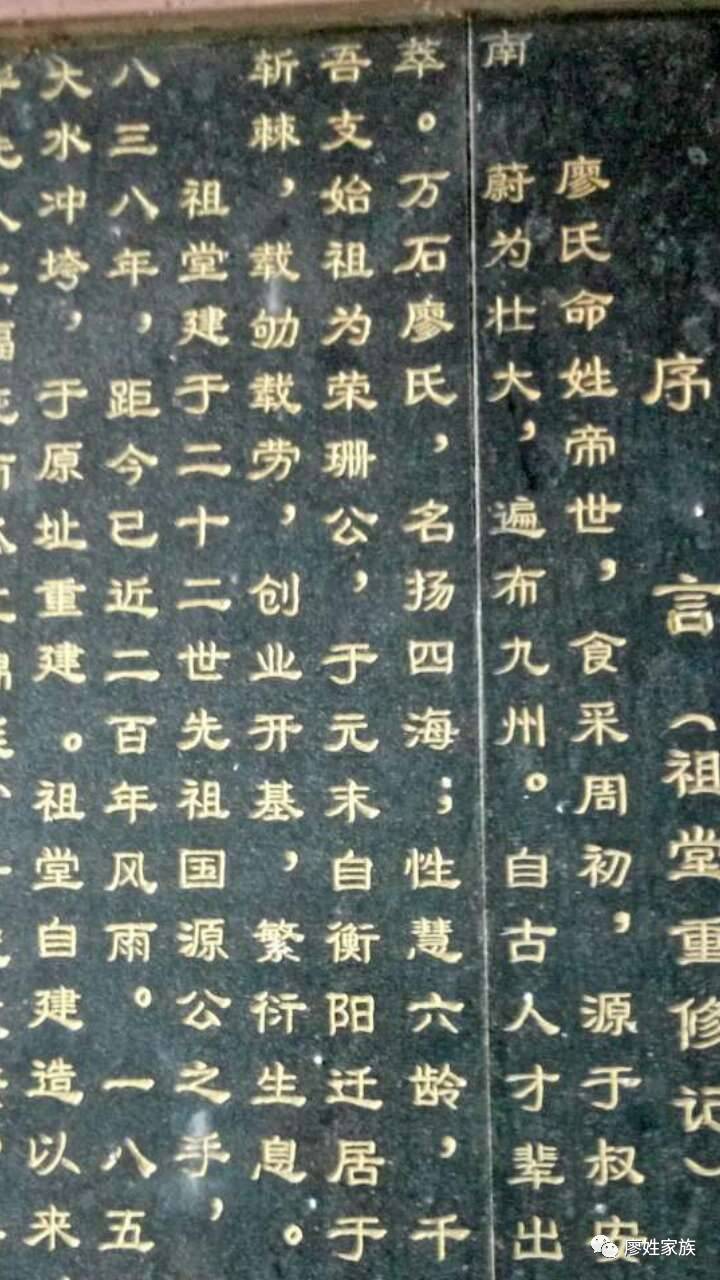 序言（祖堂重修记）
廖氏命姓帝世，食采周初，源于叔安
南蔚为壮大，遍布九州。自古人才辈出
萃。万石廖氏，名扬四海；性慧六龄，千
吾支始祖为荣珊公，于元末自衡阳迁居于
斩棘，载劬载劳，创业开基，繁衍生息。
祖堂建于二十二世先祖国源公之手，
八三八年，距今已近二百年风雨。一八五
大水冲垮，于原址重建。祖堂自建造以来，
廖姓家族